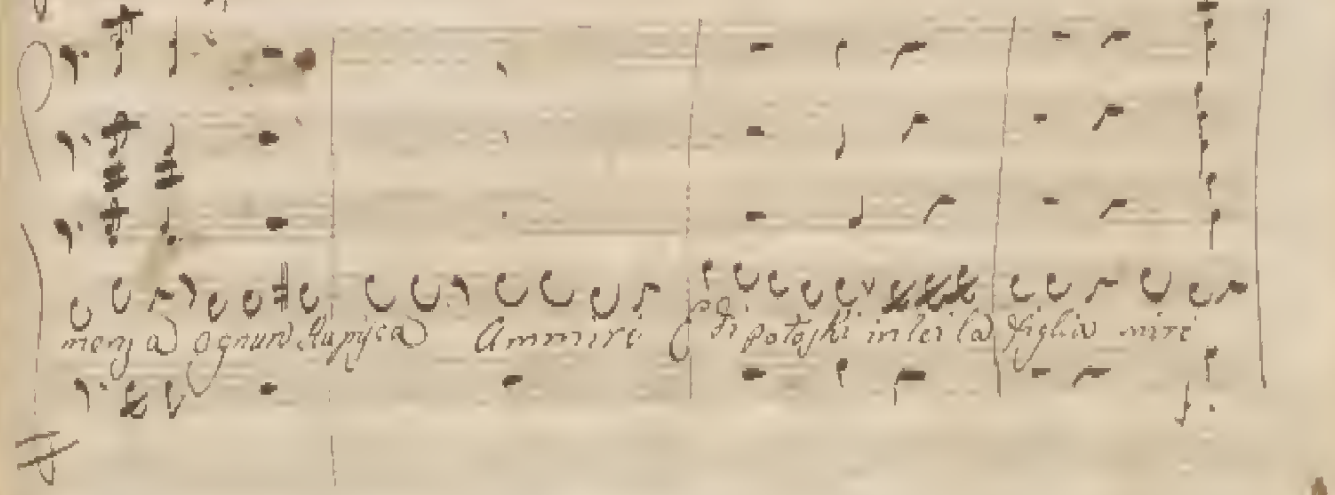 menza ognun stupisca Ammiri Di potoski in lei la figlia miri